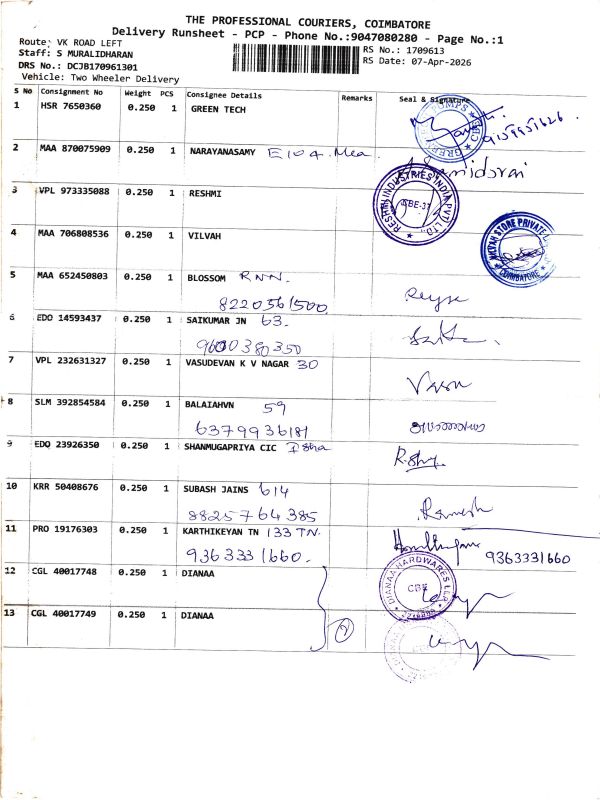 THE PROFESSIONAL COURIERS, COIMBATORE
Delivery Runsheet - PCP - Phone No.:9047080280 - Page No.:1
Route: VK ROAD LEFT
Staff: S MURALIDHARAN
DRS No.: DCJB170961301
Vehicle: Two Wheeler Delivery
RS No.: 1709613
RS Date: 07-Apr-2026
S No Consignment No Weight PCS Consignee Details Remarks Seal & Signature
1 HSR 7650360 0.250 1 GREEN TECH
2 MAA 870075909 0.250 1 NARAYANASAMY E104
3 VPL 973335088 0.250 1 RESHMI
RESHMI INDUSTRIES INDIA PVT LTD
CBE-37
4 MAA 706808536 0.250 1 VILVAH
VILVAH STORE PRIVATE
COIMBATORE
5 MAA 652450803 0.250 1 BLOSSOM RNN.
8220561500
6 EDO 14593437 0.250 1 SAIKUMAR JN 63.
9600380350
7 VPL 232631327 0.250 1 VASUDEVAN K V NAGAR 30
8 SLM 392854584 0.250 1 BALAIAHVN 59
6379936181
9 EDO 23926350 0.250 1 SHANMUGAPRIYA CIC Isha
10 KRR 50408676 0.250 1 SUBASH JAINS 614
8825764385 Ramesh
11 PRO 19176303 0.250 1 KARTHIKEYAN TN 133 TN.
9363331660. 9363331660
12 CGL 40017748 0.250 1 DIANAA
DIANAA HARDWARES LLP
CBE
13 CGL 40017749 0.250 1 DIANAA
2